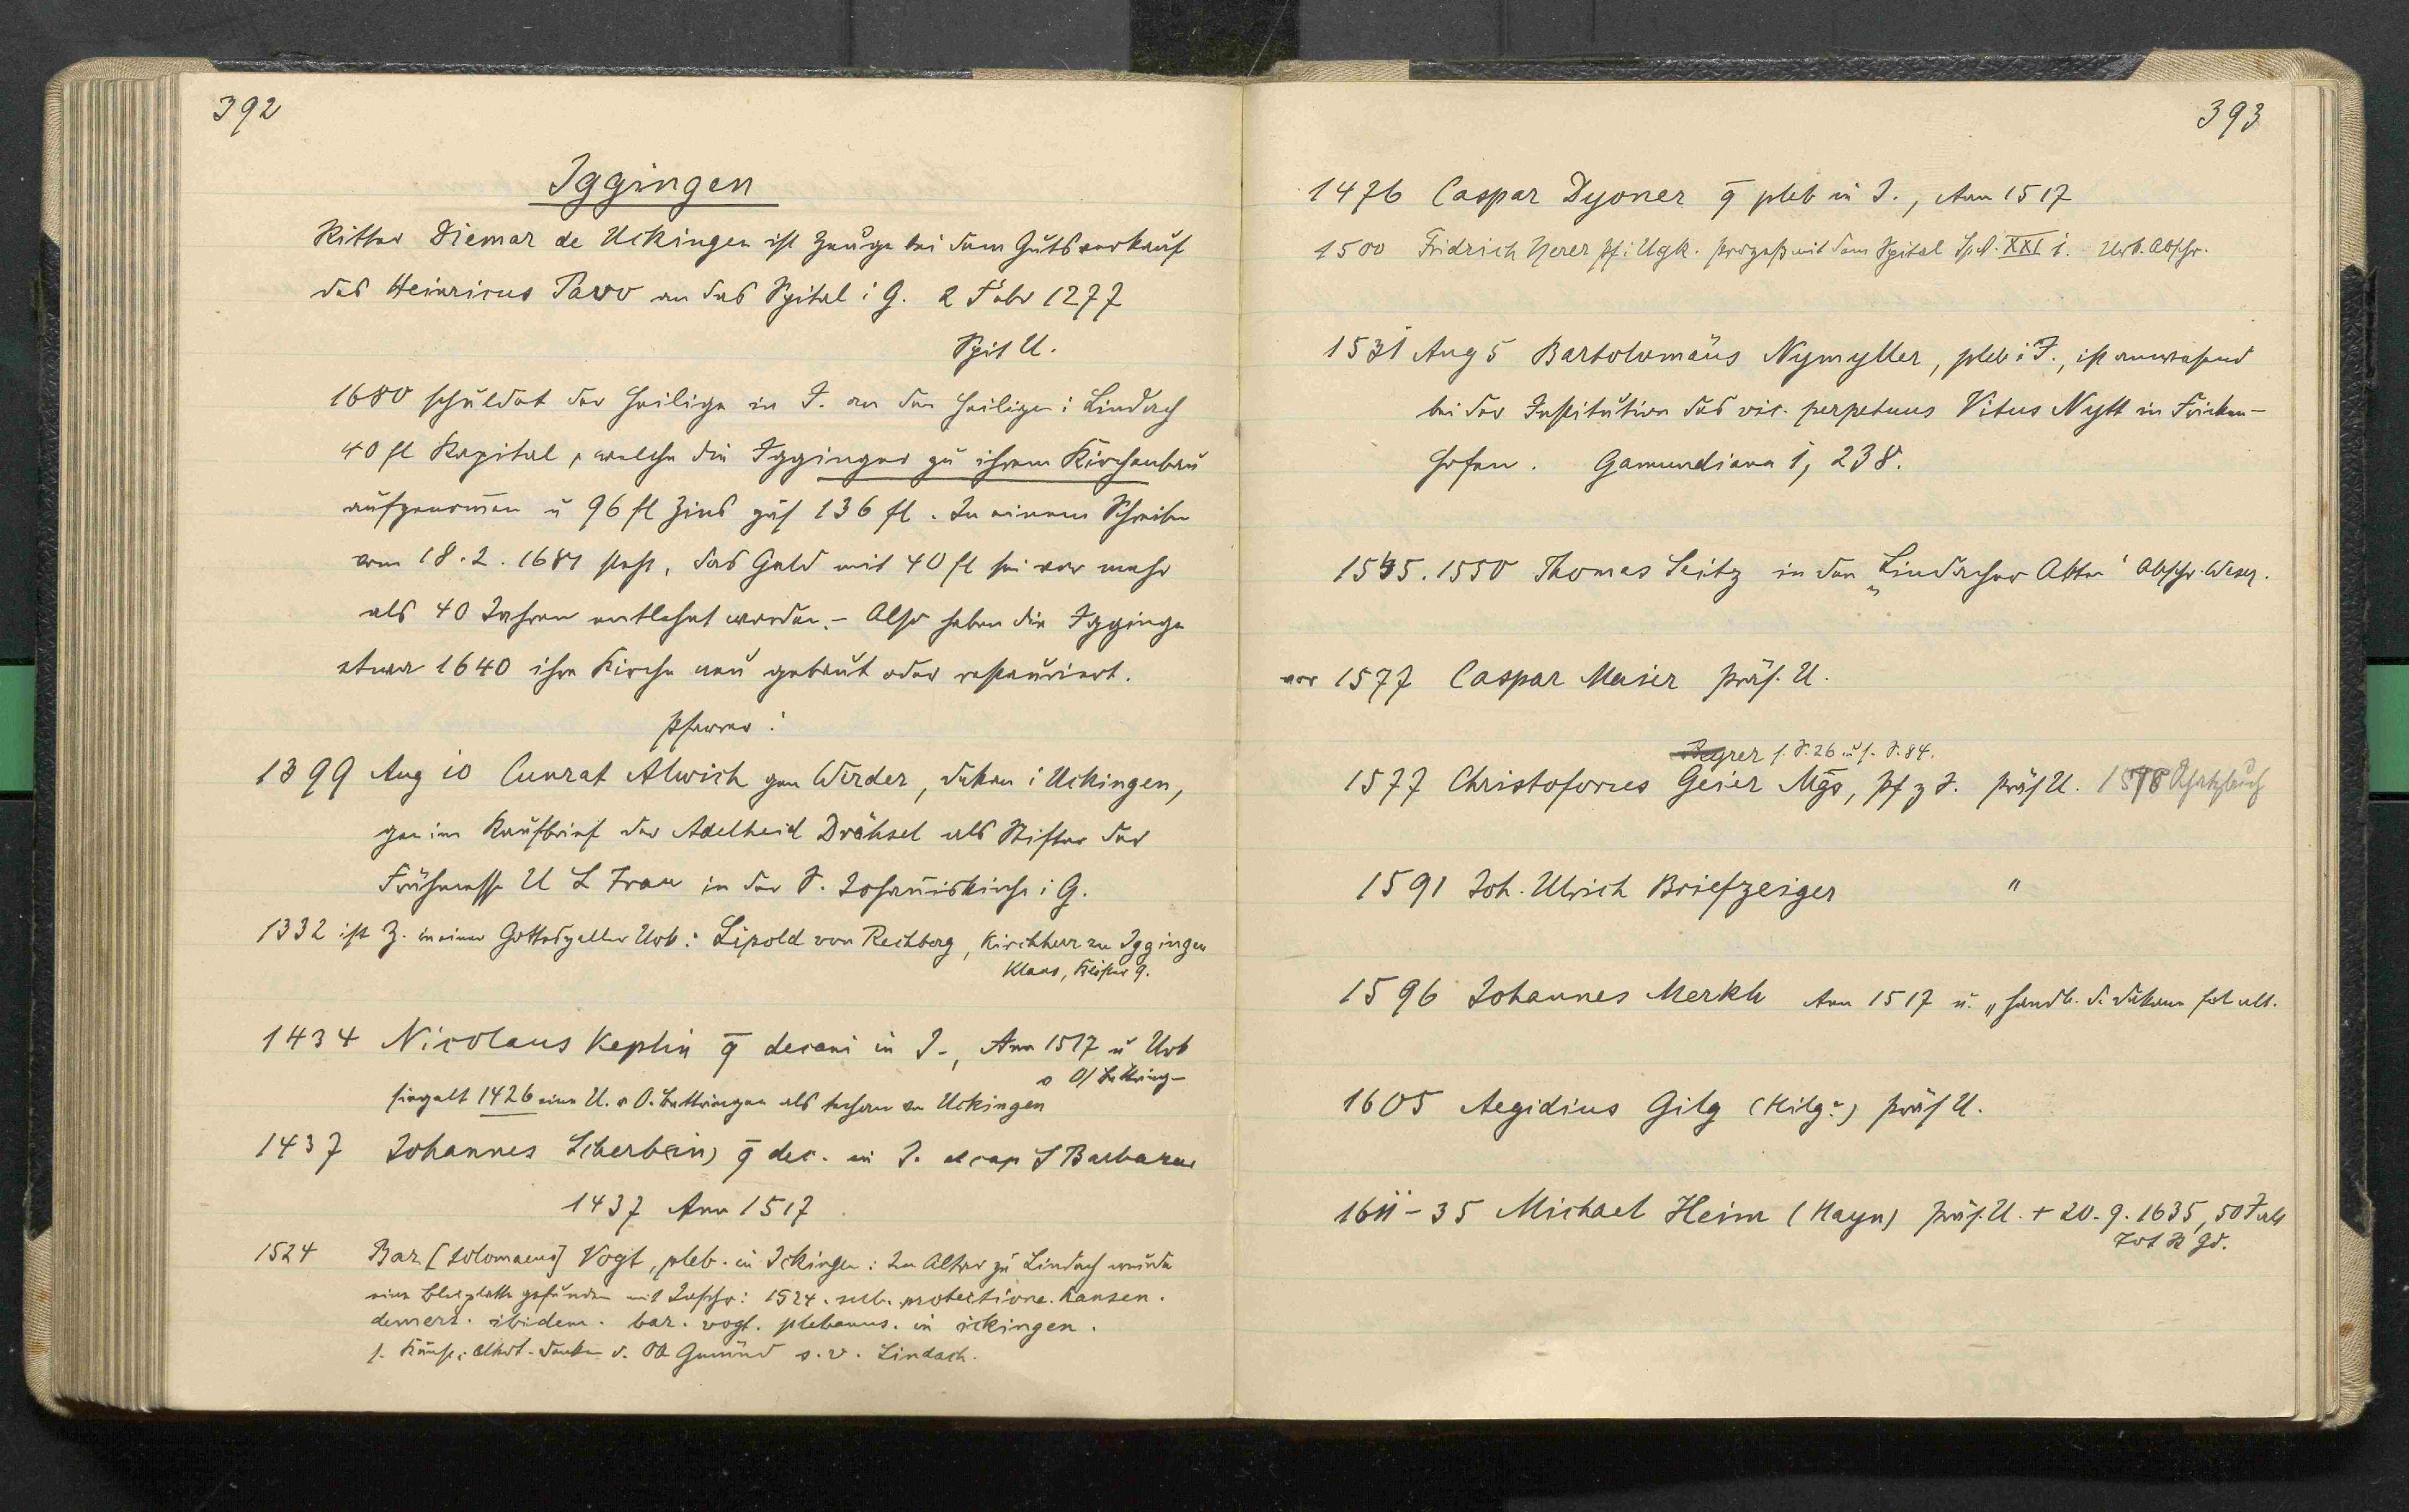 392
Iggingen
Ritter Diemar de Uckingen ist Zeuge bei dem Gutsverkauf
des Heinricus Pavo an das Spital i G. 2 Febr 1277
Spit U.
1680 schuldet der Heilige in I. an den Heiligen i Lindach
40 fl Kapital, welche die Igginger zu ihrem Kirchenbau
aufgenom̄en u 96 fl Zins zus 136 fl. In einem Schreiben
vom 18.2.1681 steht, das Geld mit 40 fl sei vor mehr
als 40 Jahren entlehnt worden. - Also haben die Igginger
etwa 1640 ihre Kirche neu gebaut oder restauriert.
Pfarrer:
1399 Aug 10 Cunrat Alwich gen Werder, Dekan i Uckingen,
gen im Kaufbrief der Adelheid Drähsel als Stifter der
Frühmesse U L Frau in der S. Johan̄iskirche i G.
1332 ist Z. in einer Gotteszeller Urk: Lipold von Rechberg, Kirchherr zu Iggingen
Klaus, Klöster 9.
1434 Nicolaus Keplin q̄ decani in I., Ann 1517 u Urk
v O/ Bettring-
siegelt 1426 eine U. v O. Bettringen als techan zu Uckingen
1437 Johannes Scherb(ein) q̄ dec. in I. et cap S Barbarae
1437 Ann 1517
1524 Bar[tolomaeus] Vogt, pleb. in Ickingen: Im Altar zu Lindach wurde
eine Bleiplatte gefunden mit Inschr: 1524. sub. protectione.
ibidem. bar. vogt. plebanus. in ickingen.
s. Kunst- u. Altert. Denkm d. OA Gmünd s.v. Lindach.
393
1476 Caspar Dyoner q̄ pleb in I., Ann 1517
1500 Fridrich Herer Pf i Ugk. Prozess mit dem Spital Sp A. XXI i. Urk. Abschr.
1531 Aug 5 Bartolomäus Nymyller, pleb i I., ist anwesend
bei der Institution des vic. perpetuus Vitus Nytt in Fricken-
hofen. Gamundiana 1, 238.
1545. 1550 Thomas Seitz in den „Lindacher Akten" Abschr. Weser.
vor 1577 Caspar Maier Präs. U.
s. S. 26 u s. S. 84.
1577 Christoforus Geier Mḡs, Pf z I. Präs U. 1578
1591 Joh. Ulrich Briefzeiger "
1596 Johannes Merkh Ann 1517 u. „Handb. d. Dekans fol ult.
1605 Aegidius Gilg (Kilg?) Präs U.
1611-35 Michael Heim (Hayn) Präs. U. + 20.9.1635, 50 J alt
Tot B Gd.